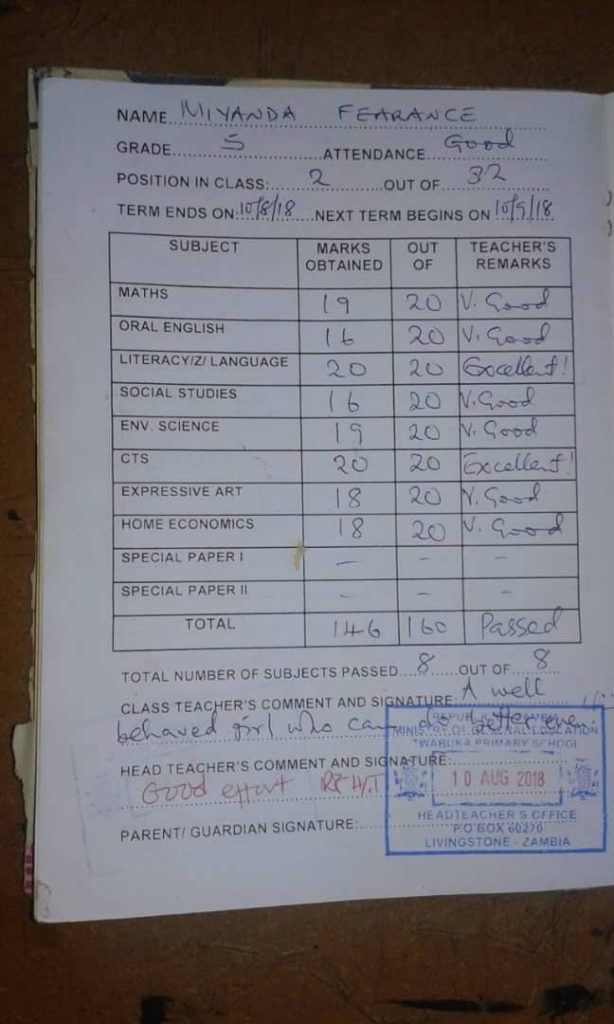 NAME MIYANDA FEARANCE
GRADE 5 ATTENDANCE Good
POSITION IN CLASS: 2 OUT OF 32
TERM ENDS ON: 10/8/18 NEXT TERM BEGINS ON 10/9/18
SUBJECT MARKS OBTAINED OUT OF TEACHER'S REMARKS
MATHS 19 20 V. Good
ORAL ENGLISH 16 20 V. Good
LITERACY/Z/ LANGUAGE 20 20 Excellent!
SOCIAL STUDIES 16 20 V. Good
ENV. SCIENCE 19 20 V. Good
CTS 20 20 Excellent!
EXPRESSIVE ART 18 20 V. Good
HOME ECONOMICS 18 20 V. Good
SPECIAL PAPER I – – –
SPECIAL PAPER II – – –
TOTAL 146 160 Passed
TOTAL NUMBER OF SUBJECTS PASSED 8 OUT OF 8
CLASS TEACHER'S COMMENT AND SIGNATURE: A well
behaved girl who can do better even
MINISTRY OF GENERAL EDUCATION
TWABUKA PRIMARY SCHOOL
HEAD TEACHER'S COMMENT AND SIGNATURE:
Good effort H/T
10 AUG 2018
HEADTEACHER'S OFFICE
PARENT/ GUARDIAN SIGNATURE:
P.O BOX 60270
LIVINGSTONE - ZAMBIA